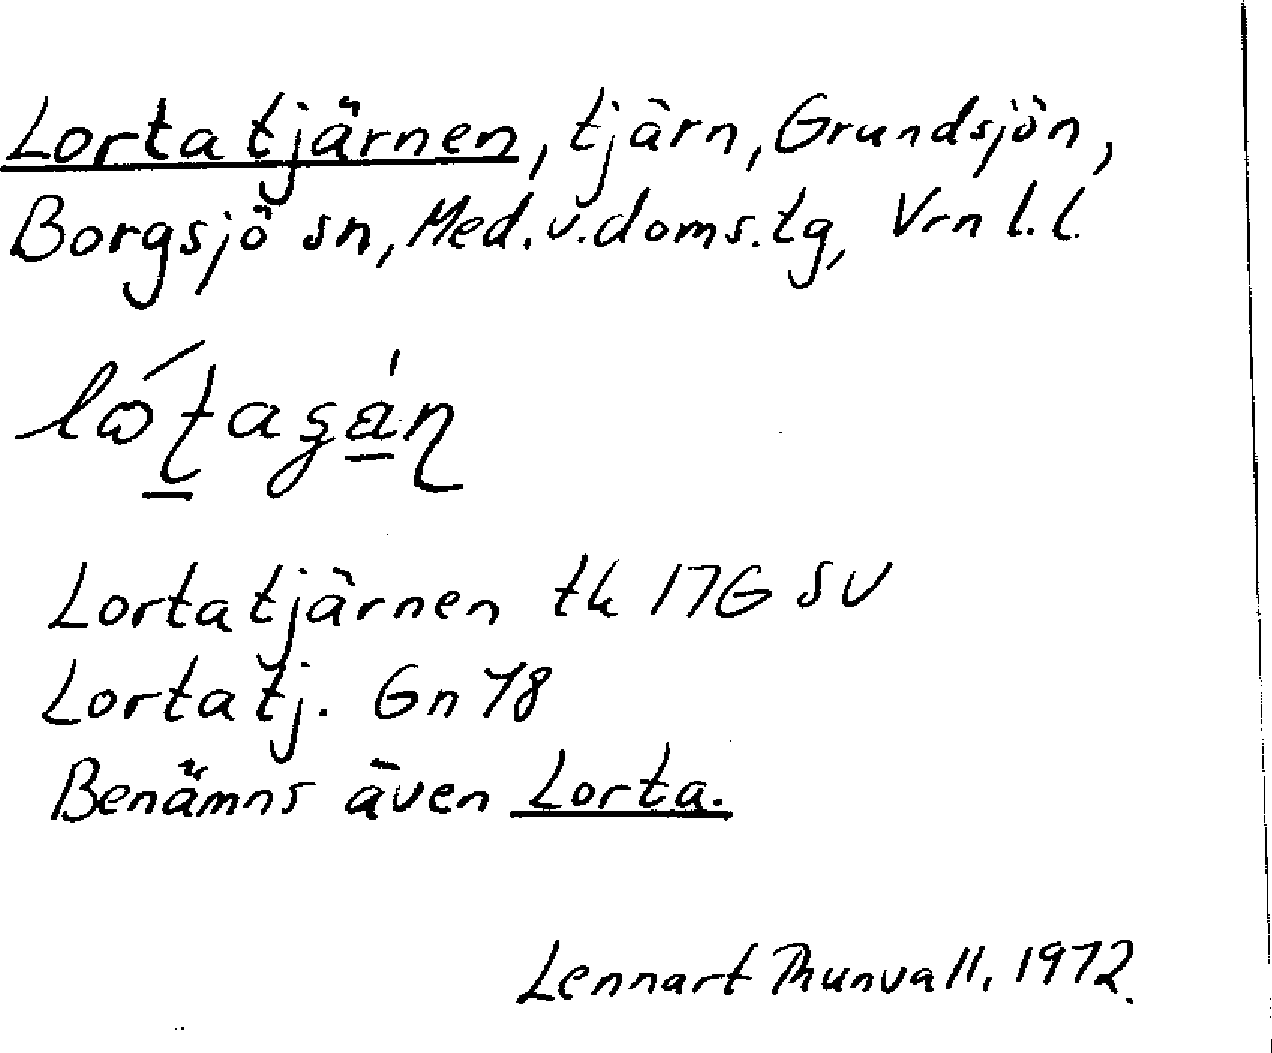 Lortatjärnen, tjärn, Grundsjön,
Borgsjö sn, Med. v. doms. tg, Vrn l.l.
Lortatjärnen tk 17G SV
Lortatj. Gn 78
Benämns även Lorta.
Lennart Thunvall, 1972.